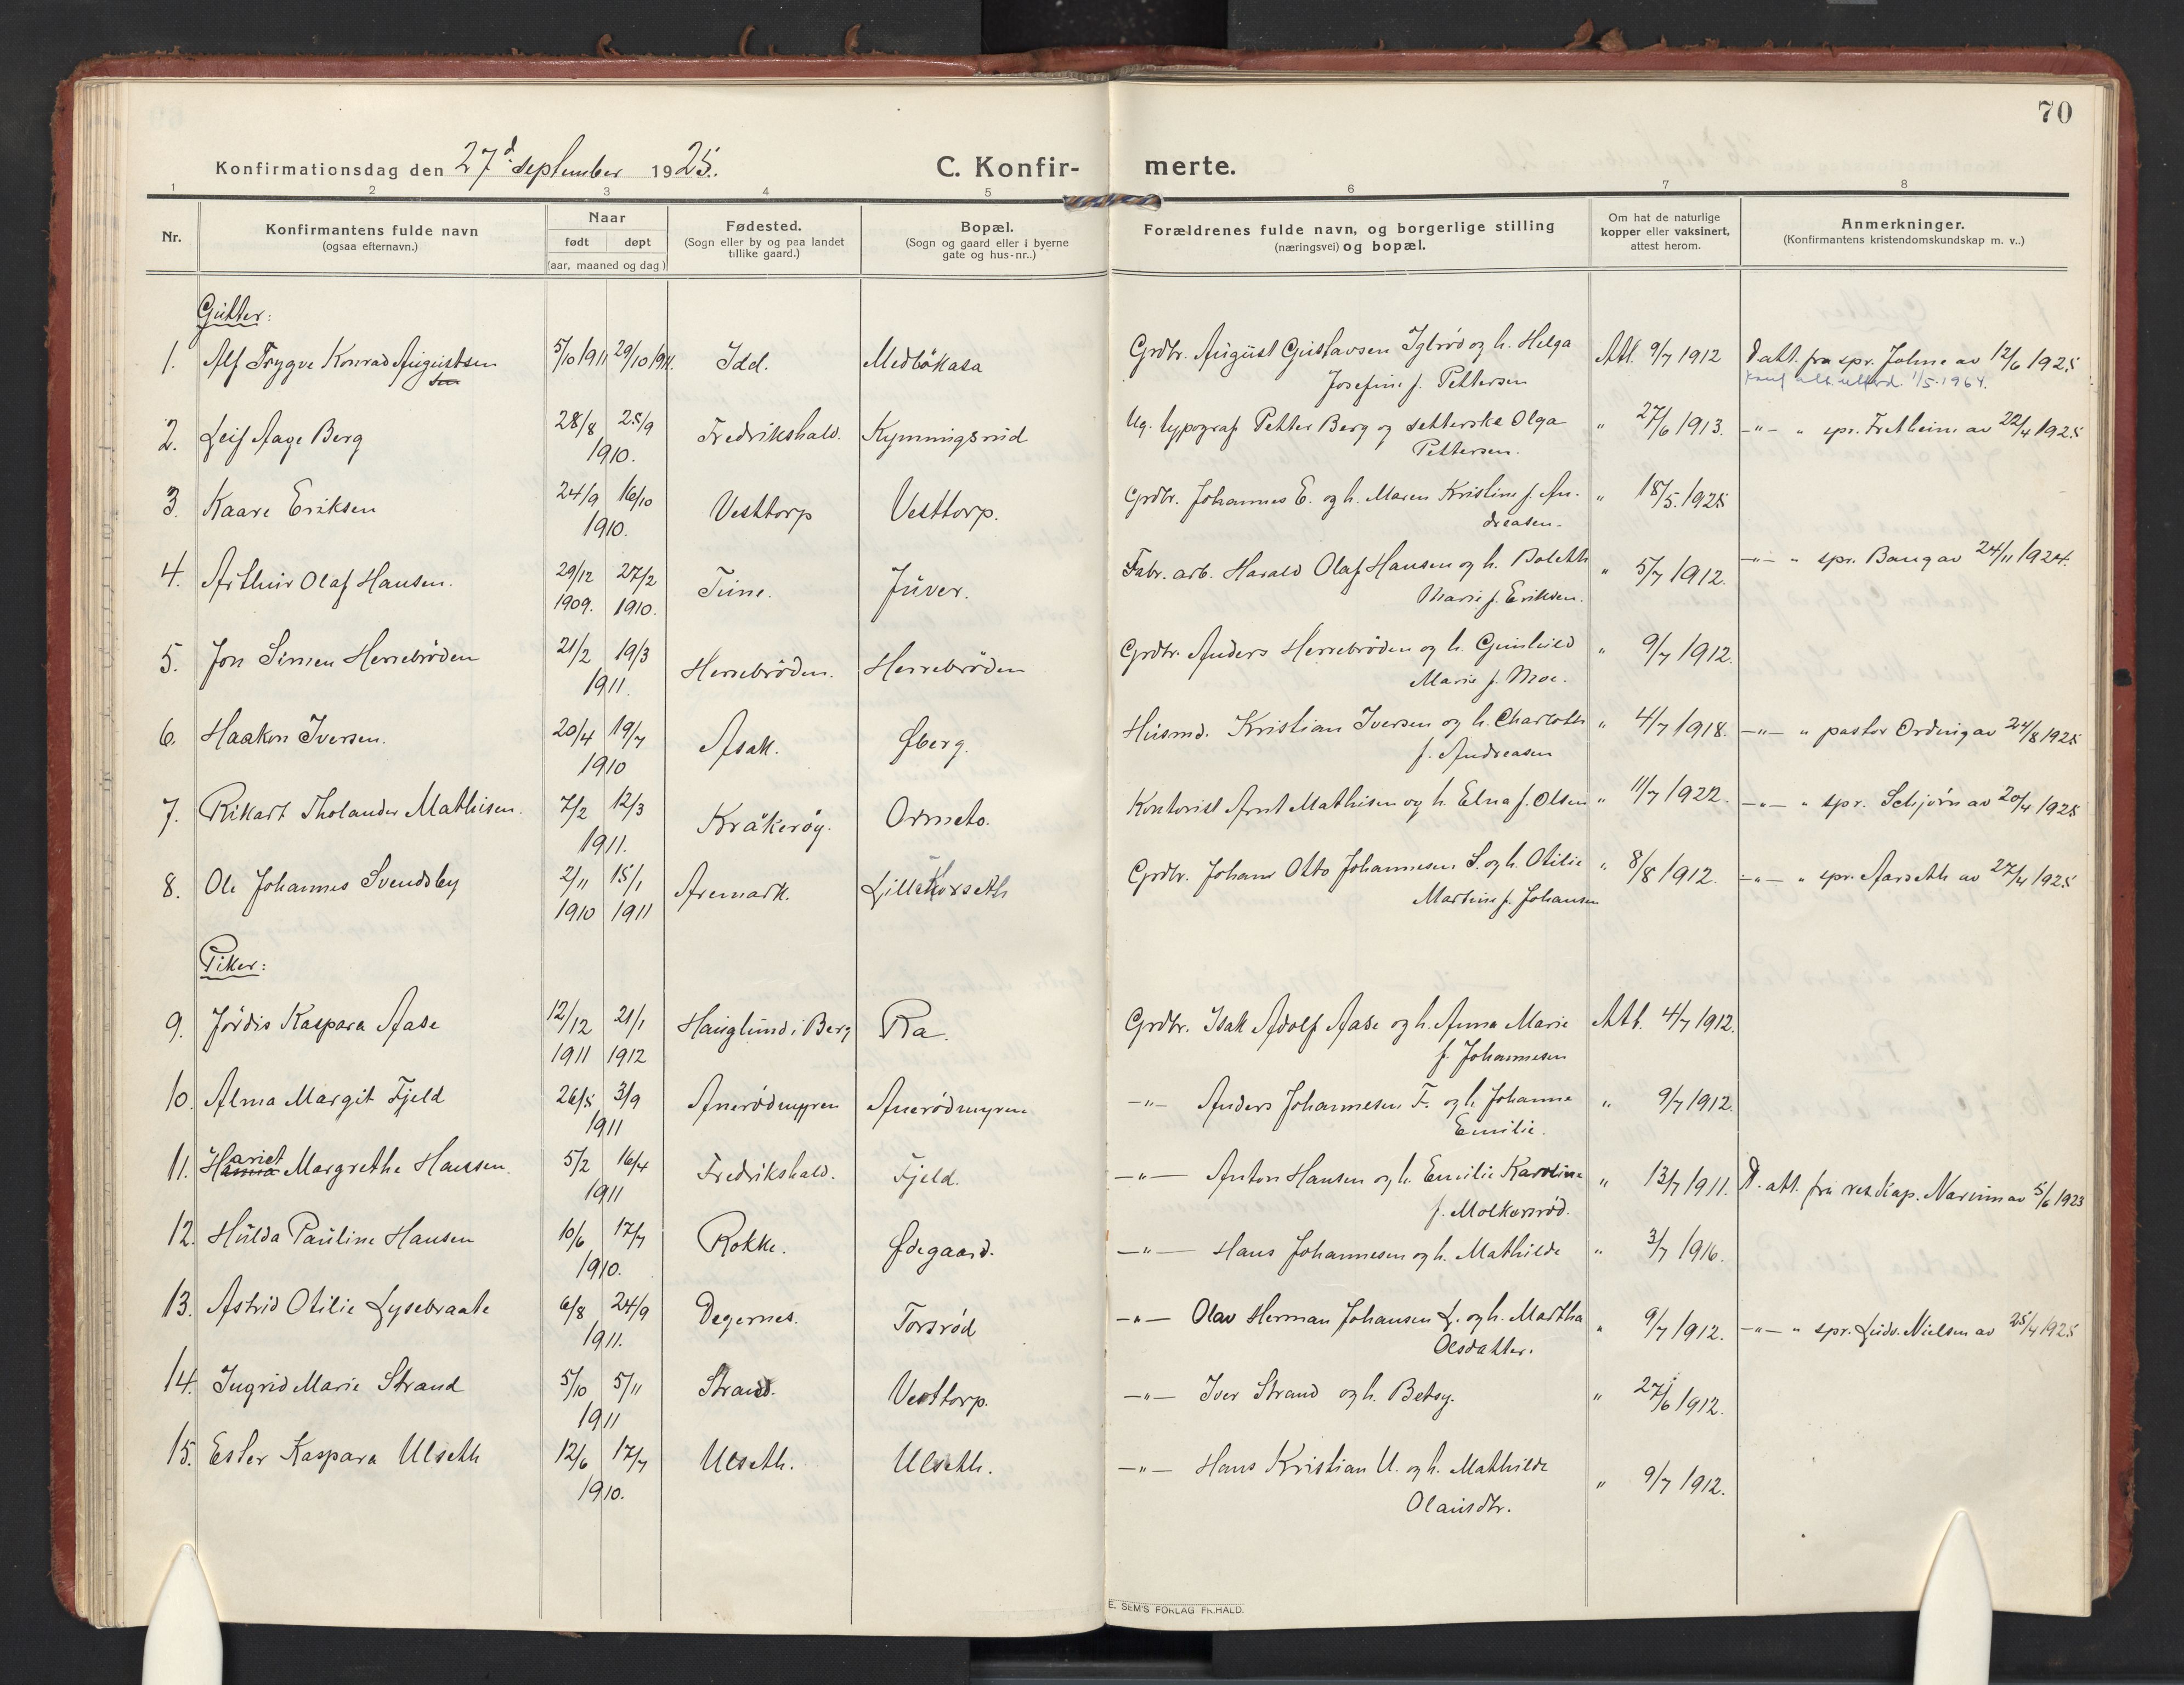 70
Konfirmationsdag den 27d. september 1925.
C. Konfir- merte.
1 2 3 4 5 6 7 8
Nr.
Konfirmantens fulde navn
(ogsaa efternavn.)
Naar
født døpt
(aar, maaned og dag)
Fødested.
(Sogn eller by og paa landet
tillike gaard.)
Bopæl.
(Sogn og gaard eller i byerne
gate og hus-nr..)
Forældrenes fulde navn, og borgerlige stilling
(næringsvei) og bopæl.
Om hat de naturlige
kopper eller vaksinert,
attest herom.
Anmerkninger.
(Konfirmantens kristendomskundskap m. v..)
Gutter:
1. Alf Trygve Konrad Augustsen 5/10 1911 29/10 1911. Idd. Medbökasa Grdbr. August Gustavsen Iglrød og h. Helga Att. 9/7 1912 D.att. fra spr. av 12/6 1925
Josefine f. Pettersen 1/5-1964.
2. Leif Aage Berg 28/8 25/9 Fredrikshald. Kynningsrud Ug. typograf Petter Berg og setterske Olga " 27/6 1913. -"- " spr. Fretheim av 22/4 1925
1910. Pettersen.
3. Kaare Eriksen 24/9 16/10 Vesttorp Vesttorp. Grdbr. Johannes E. og h. Maren Kristine f. An- " 18/5. 1925
1910. dreasen.
4. Arthur Olaf Hansen. 29/12 27/2 Tune. Juver. Fabr. arb. Harald Olaf Hansen og h. Bolette " 5/7 1912. -"- " spr. Bang av 24/11 1924.
1909. 1910. Marie f. Eriksen.
5. Jon Simen Herrebröden 21/2 19/3 Herrebröden. Herrebröden Grdbr. Anders Herrebröden og h. Gunhild " 9/7 1912.
1911. Marie f. Moe.
6. Haakon Iversen. 20/4 19/7 Asak. Øberg. Husmd. Kristian Iversen og h. Charlotte " 4/7 1918. -"- " pastor Ording av 24/8 1925
1910 f. Andreasen
7. Rikart Tholander Mathisen. 7/2 12/3 Kråkerøy. Ormeto. Kontorist Arnt Mathisen og h. Elna f. Olsen " 11/7 1922. -"- " spr. Schjørn av 20/4 1925
1911.
8. Ole Johannes Svendsby 2/11 15/1 Aremark. Lille Korseth Grdbr. Johan Otto Johannesen S. og h. Otilie " 8/8 1912. -"- " spr. Aarseth av 27/4 1925
1910 1911 Martine f. Johansen
Piker:
9. Jördis Kaspara Aase 12/12 21/1 Hauglund i Berg Ra. Grdbr. Isak Adolf Aase og h. Anna Marie Att. 4/7 1912.
1911 1912 f. Johannesen
10. Alma Margit Fjeld 26/5 3/9 Anerödmyren Anerödmyren -"- Anders Johannesen F. og h. Johanne " 9/7 1912.
1911 Emilie.
11. Hariet Margrethe Hansen. 5/2 16/4 Fredrikshald. Fjeld. -"- Anton Hansen og h. Emilie Karoline " 13/7 1911. D. att. fra res. kap. Narum av 5/6 1923
1911 f. Molkersrød.
12. Hulda Pauline Hansen 10/6 17/7 Rokke. Ødegaard. -"- Hans Johannesen og h. Mathilde " 3/7 1916.
1910.
13. Astrid Otilie Lysebraate 6/8 24/9 Degernes. Torsrød -"- Olav Herman Johansen L. og h. Martha " 9/7 1912. -"- " spr. Ludv. Nielsen av 25/4 1925
1911. Olsdatter.
14. Ingrid Marie Strand 5/10 5/11 Strand. Vesttorp. -"- Iver Strand og h. Betsy. " 27/6 1912.
1911
15. Ester Kaspara Ulseth 12/6 17/7 Ulseth. Ulseth. -"- Hans Kristian U. og h. Mathilde " 9/7 1912.
1910. Olausdtr.
E. SEM'S FORLAG FR.HALD.